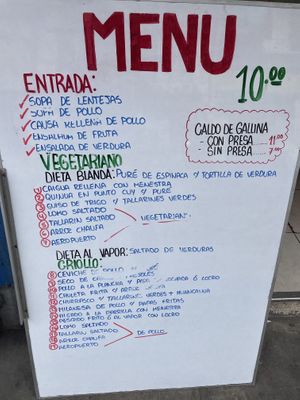 MENU
10.00
ENTRADA:
SOPA DE LENTEJAS
SOPA DE POLLO
CAUSA RELLENA DE POLLO
ENSALADA DE FRUTA
ENSALADA DE VERDURA
CALDO DE GALLINA
- CON PRESA 11.00
- SIN PRESA 7.00
VEGETARIANO
DIETA BLANDA: PURÉ DE ESPINACA Y TORTILLA DE VERDURA
CAIGUA RELLENA CON MENESTRA
QUINUA EN PUNTO CUY Y PURÉ
GUISO DE TRIGO Y TALLARINES VERDES
LOMO SALTADO
TALLARIN SALTADO
VEGETARIAN
ARROZ CHAUFA
AEROPUERTO
DIETA AL VAPOR: SALTADO DE VERDURAS
CRIOLLO:
CEVICHE DE POLLO
SECO DE
POLLO A LA PLANCHA Y O LOCRO
CHULETA FRITA Y ARROZ
CHURRASCO Y TALLARIN VERDES + HUANCAINA
MILANESA DE POLLO Y PAPAS FRITAS
A LA PARRILLA CON MENESTRA
PESCADO FRITO Ó AL VAPOR CON LOCRO
LOMO SALTADO
TALLARIN SALTADO
DE POLLO
ARROZ CHAUFA
AEROPUERTO